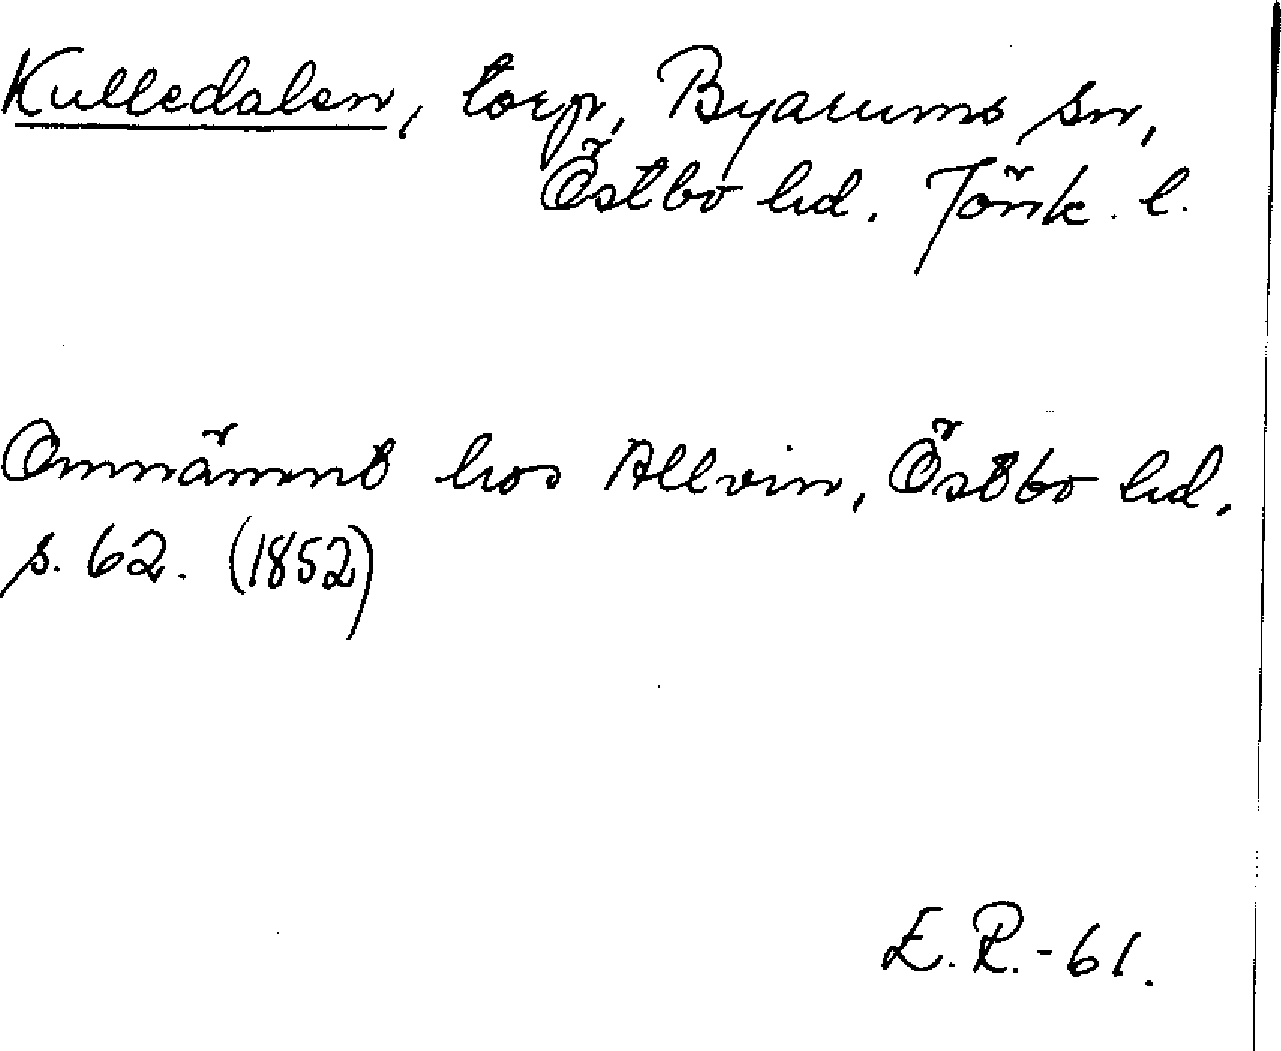 Kulledalen, torp, Byarums sn,
Östbo hd. Jönk. l.
Omnämnt hos Allvin, Östbo hd.
s. 62. (1852)
E.R.-61.